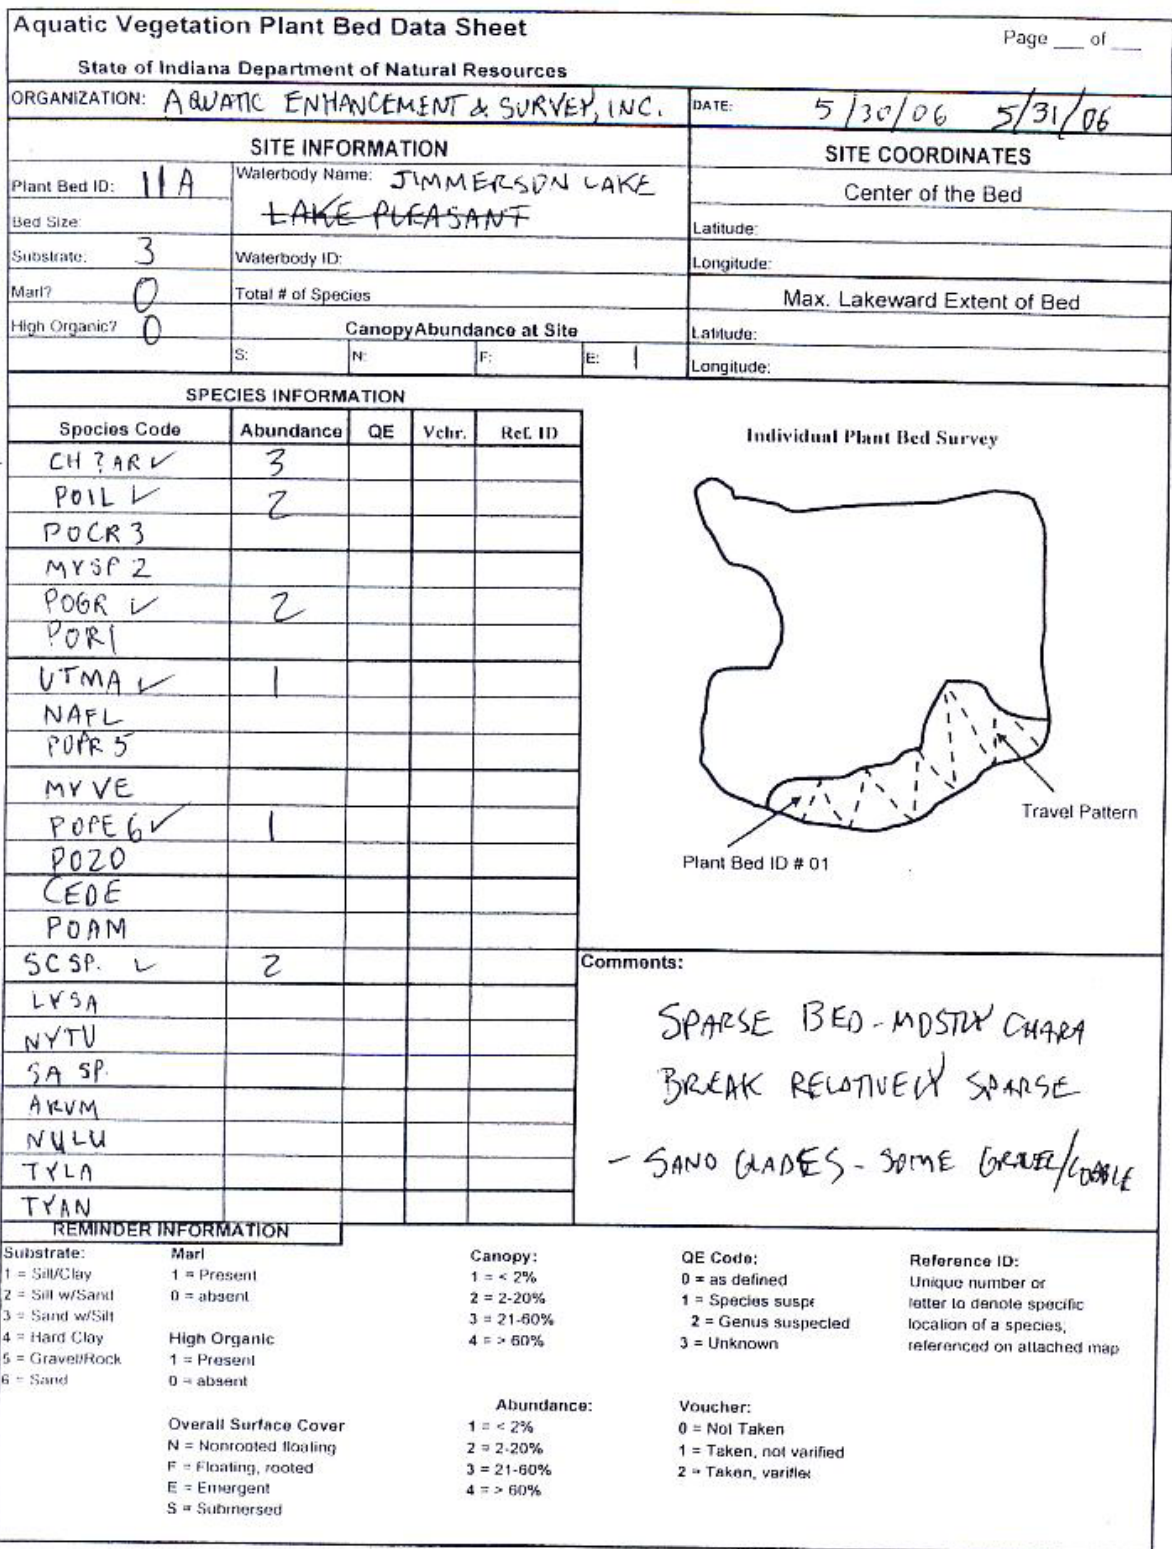 Aquatic Vegetation Plant Bed Data Sheet
Page ___ of ___
State of Indiana Department of Natural Resources
ORGANIZATION: AQUATIC ENHANCEMENT & SURVEY, INC. DATE: 5/30/06 5/31/06
SITE INFORMATION
SITE COORDINATES
Plant Bed ID: 11A
Waterbody Name: JIMMERSON LAKE
LAKE PLEASANT
Center of the Bed
Bed Size:
Latitude:
Substrate: 3
Waterbody ID:
Longitude:
Marl? 0
Total # of Species
Max. Lakeward Extent of Bed
High Organic? 0
CanopyAbundance at Site
Latitude:
S: N: F: E: 1
Longitude:
SPECIES INFORMATION
Species Code Abundance QE Vchr. Ref. ID
CH?AR ✓ 3
POIL ✓ 2
POCR3
MYSP2
POGR ✓ 2
PORI
UTMA ✓ 1
NAFL
POPR5
MYVE
POPE6 ✓ 1
POZO
CEDE
POAM
SC SP. ✓ 2
LYSA
NYTU
SA SP.
ARVM
NULU
TYLA
TYAN
Individual Plant Bed Survey
Travel Pattern
Plant Bed ID # 01
Comments:
SPARSE BED - MOSTLY CHARA
BREAK RELATIVELY SPARSE
- SAND GLADES - SOME GRAVEL/COBBLE
REMINDER INFORMATION
Substrate:
1 = Silt/Clay
2 = Silt w/Sand
3 = Sand w/Silt
4 = Hard Clay
5 = Gravel/Rock
6 = Sand
Marl
1 = Present
0 = absent
High Organic
1 = Present
0 = absent
Overall Surface Cover
N = Nonrooted floating
F = Floating, rooted
E = Emergent
S = Submersed
Canopy:
1 = < 2%
2 = 2-20%
3 = 21-60%
4 = > 60%
Abundance:
1 = < 2%
2 = 2-20%
3 = 21-60%
4 = > 60%
QE Code:
0 = as defined
1 = Species suspe
2 = Genus suspected
3 = Unknown
Voucher:
0 = Not Taken
1 = Taken, not varified
2 = Taken, varifie
Reference ID:
Unique number or
letter to denote specific
location of a species;
referenced on attached map